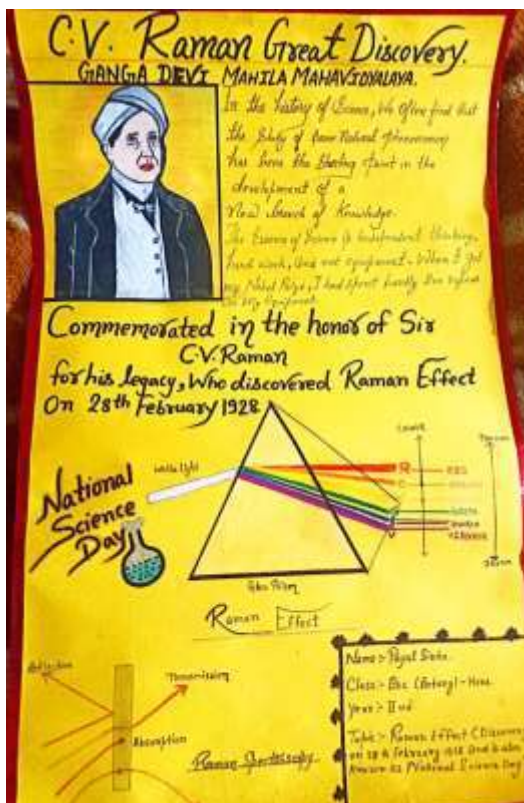 C.V. Raman Great Discovery.
GANGA DEVI MAHILA MAHAVIDYALAYA.
In the history of Science, We often find that
the Study of Natural Phenomenon
has been the Starting Point in the
development of a
New branch of Knowledge.
The Essence of Science is independent thinking,
hard work, and not equipment. When I got
my Nobel Prize, I had spent hardly
on my Equipment.
Commemorated in the honor of Sir
C.V. Raman
for his legacy, Who discovered Raman Effect
On 28th February 1928
White light
National
Science
Day
R
RED
V
Glass Prism
Raman Effect
Reflection
Transmission
Absorption
Raman Spectroscopy
Name:-
Class:- Bsc (Botany)-Hons
Year:- II nd
Topic:- Raman Effect
on 28th February 1928 and is also
Known as National Science Day